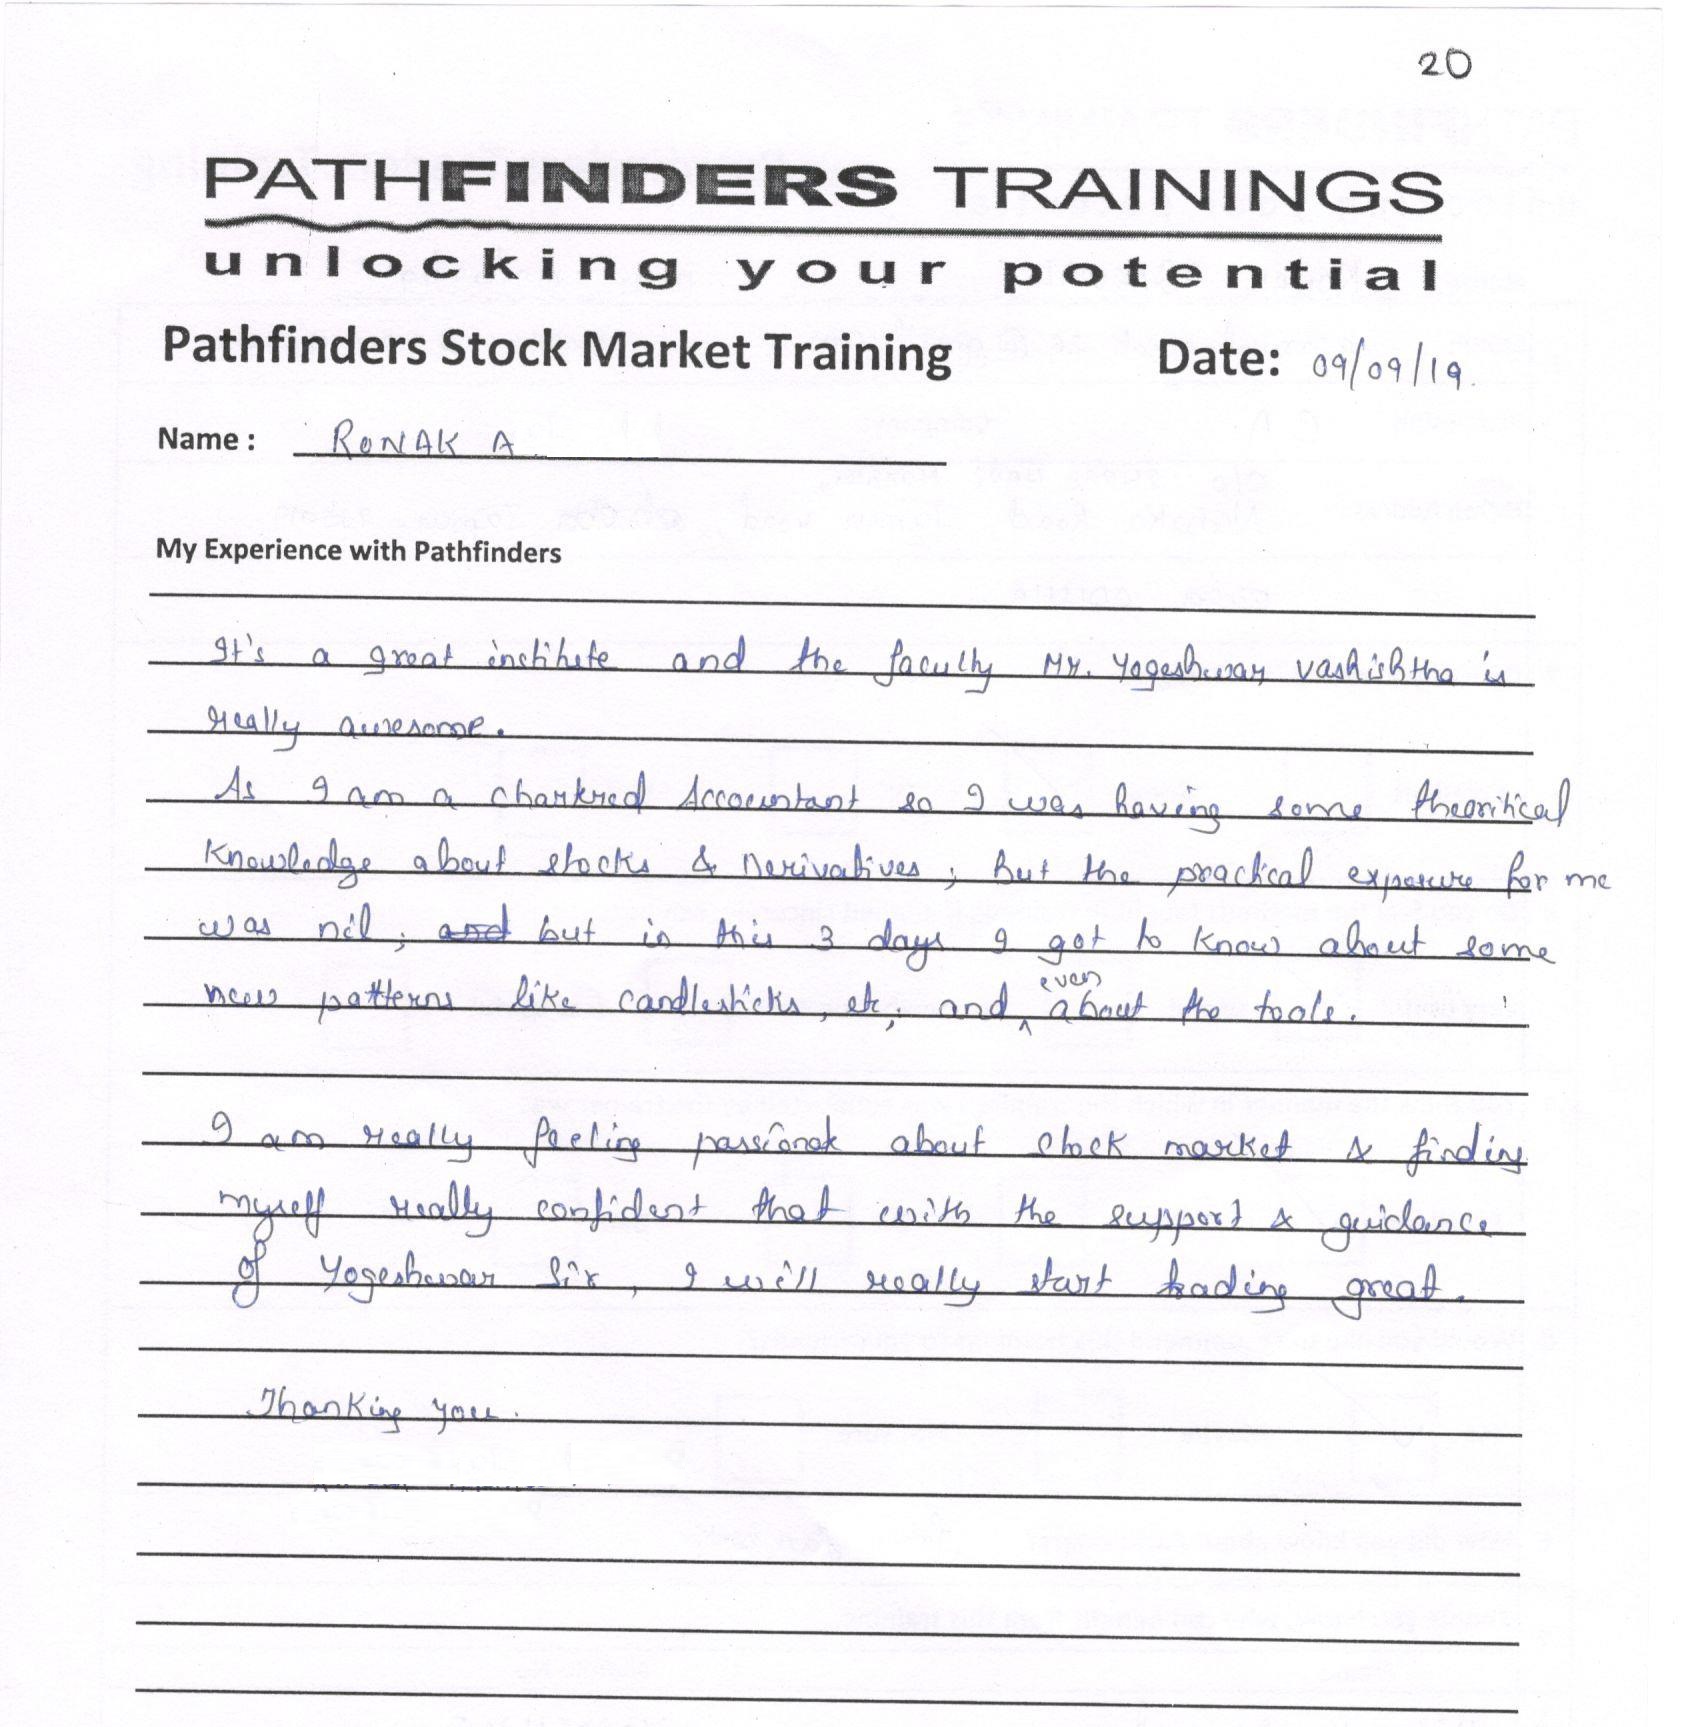 20
PATHFINDERS TRAININGS
unlocking your potential
Pathfinders Stock Market Training Date: 09/09/19.
Name : RONAK A
My Experience with Pathfinders
It's a great institute and the faculty Mr. Yogeshwar Vashishtha is
really awesome.
As I am a chartered Accountant so I was having some theoritical
Knowledge about stocks & Derivatives, but the practical exposure for me
was nil, and but in this 3 days I got to know about some
new patterns like candlesticks, etc, and even about the tools.
I am really feeling passionate about stock market & finding
myself really confident that with the support & guidance
of Yogeshwar Sir, I will really start trading great.
Thanking you.